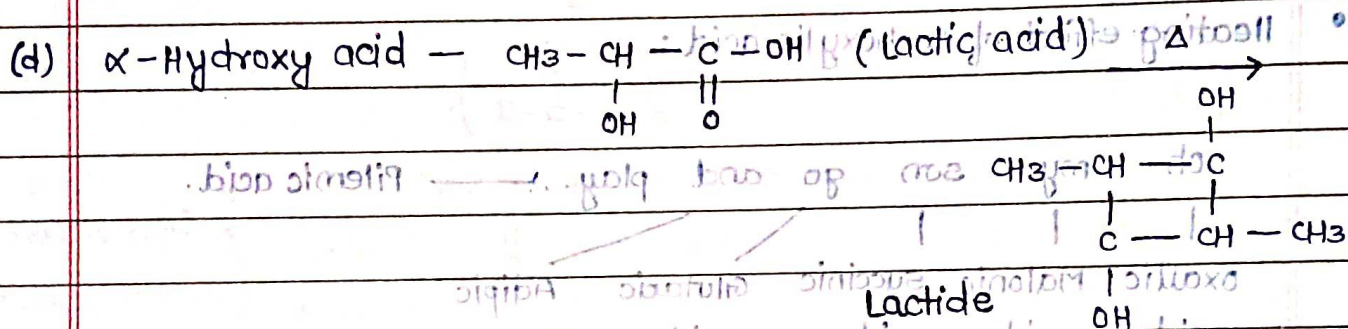 (d) α-Hydroxy acid — CH3 - CH — C — OH (Lactic acid) Δ →
OH O
OH
CH3 — CH — C
C — CH — CH3
Lactide
OH